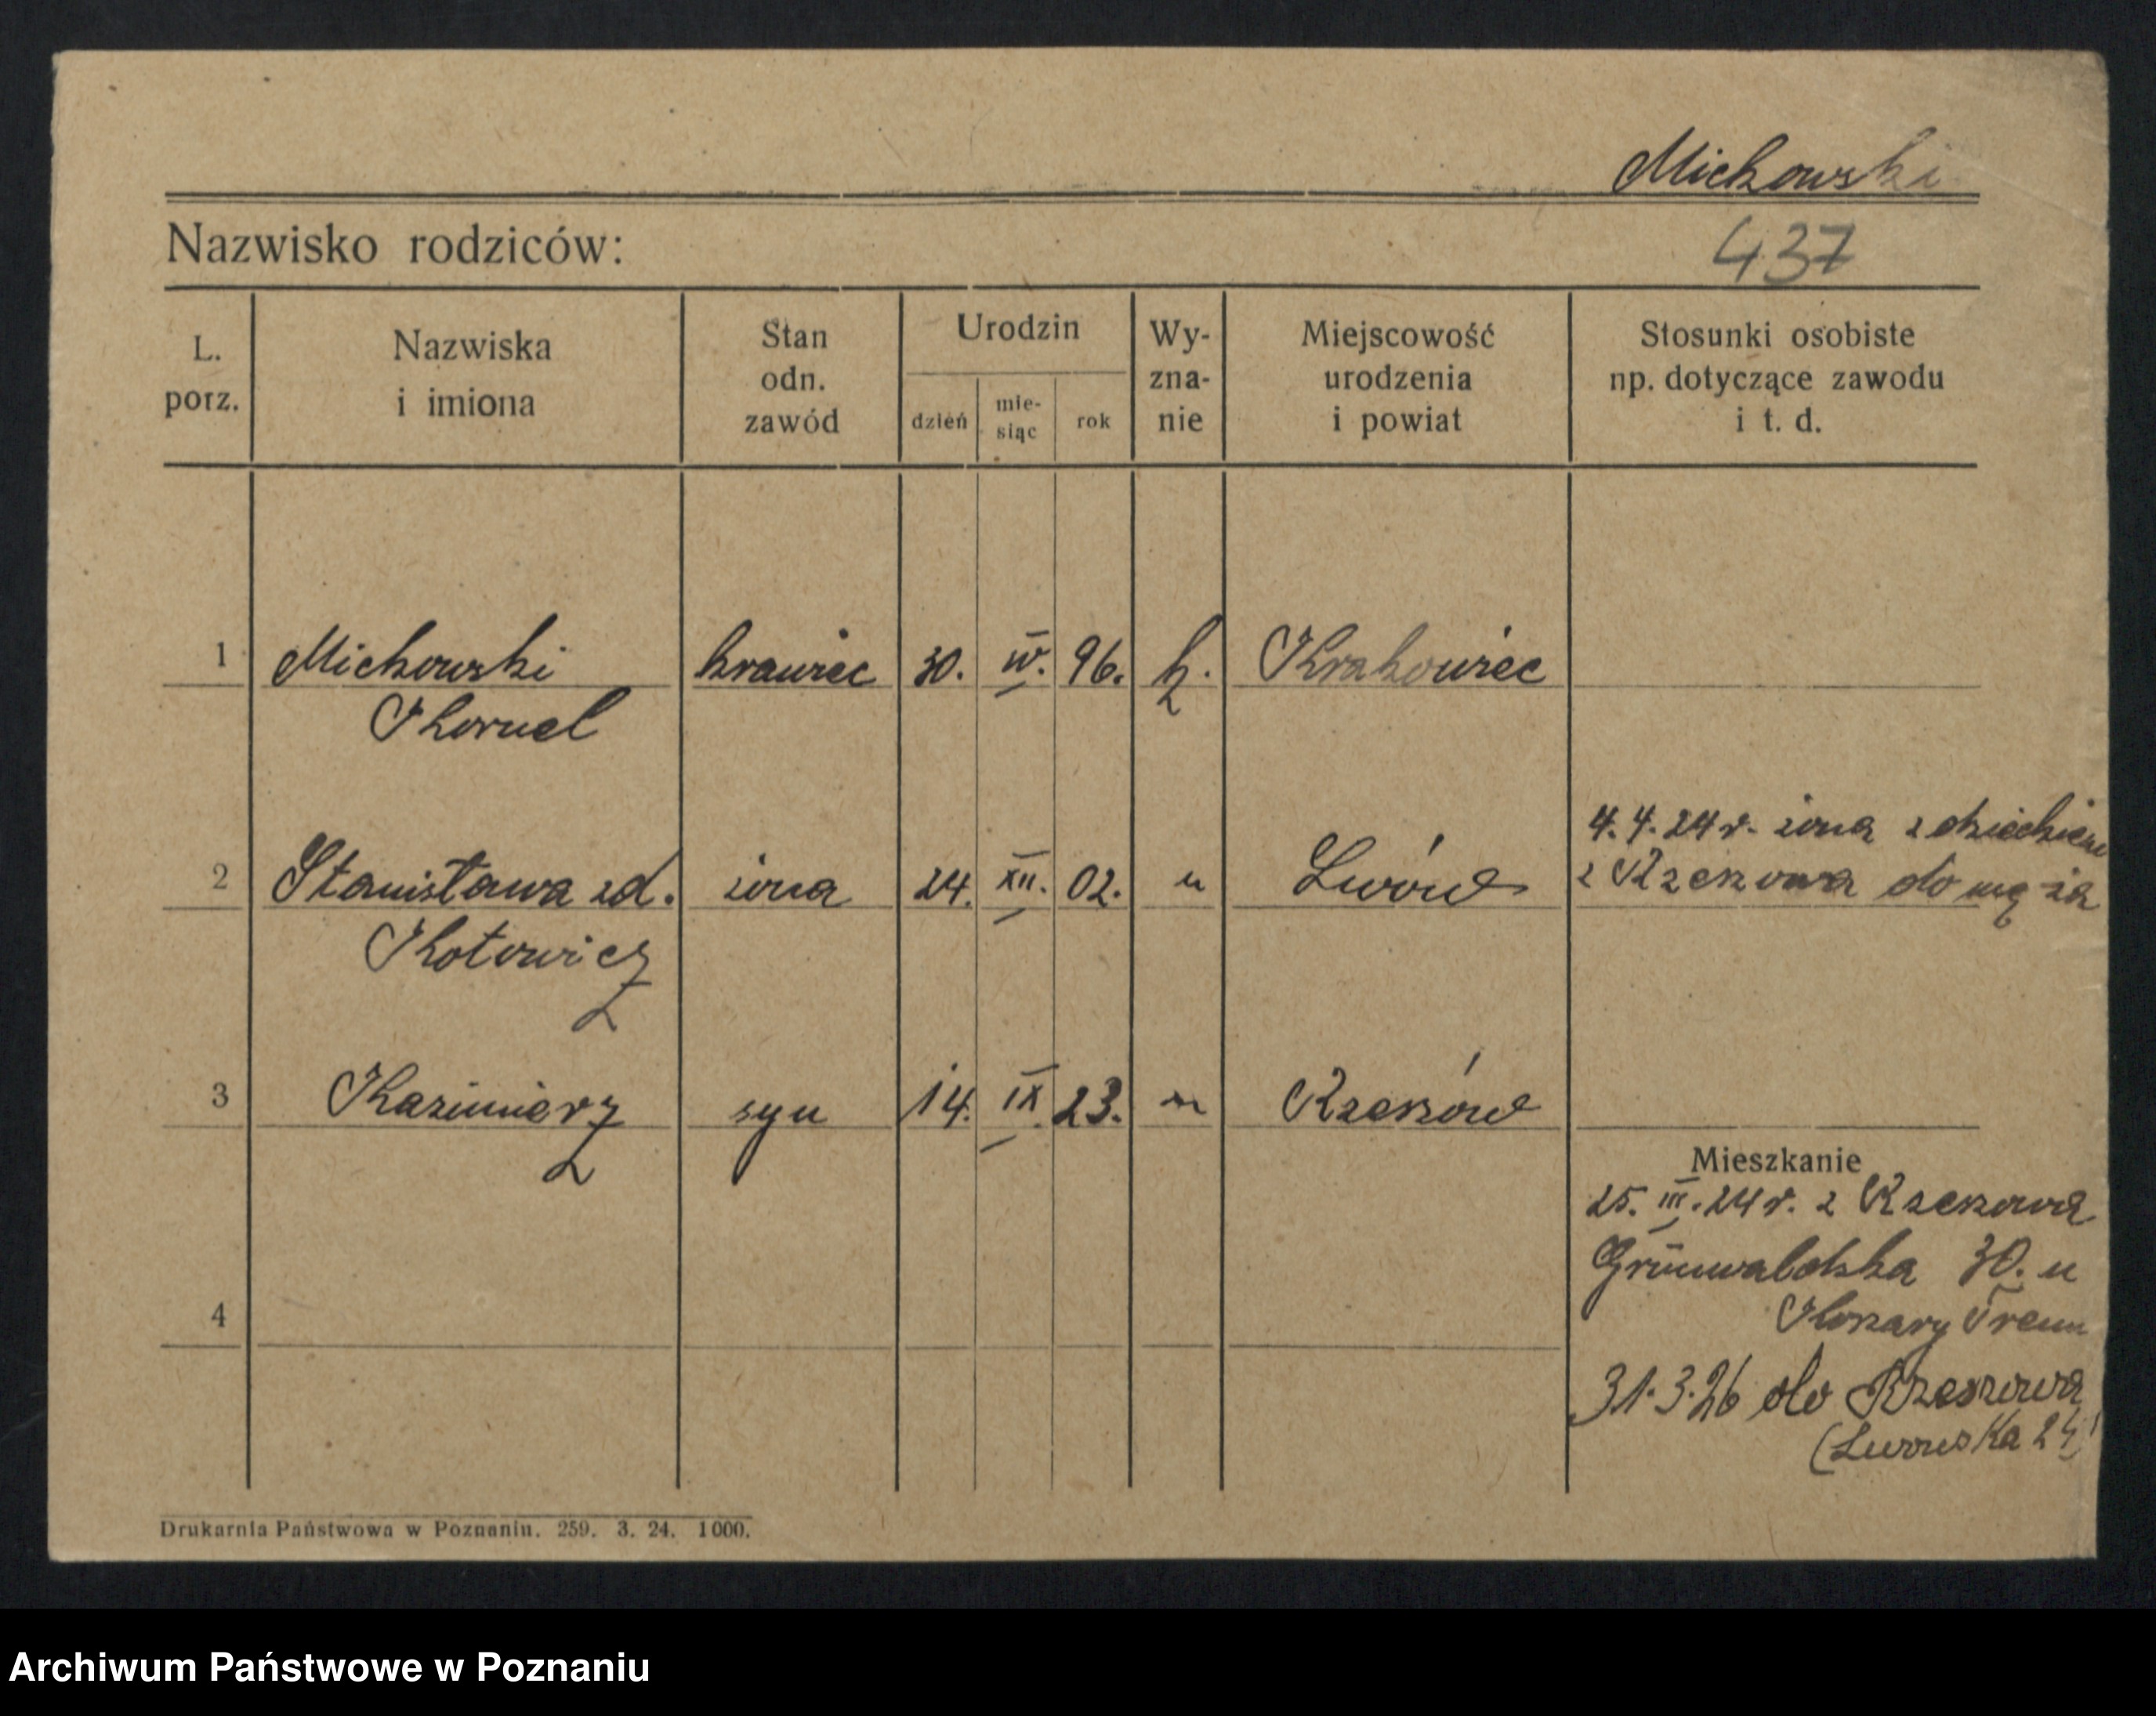 Michowski
Nazwisko rodziców:
437
L. porz.
Nazwiska i imiona
Stan odn. zawód
Urodzin
dzień
mie-siąc
rok
Wy-zna-nie
Miejscowość urodzenia i powiat
Stosunki osobiste np. dotyczące zawodu i t. d.
1 Michowski krawiec 30. IV. 96. k. Krakowiec
Kornel
4.4.24 r. żona z dzieckiem
2 Stanisława zd. żona 24. XII. 02. " Lwów z Rzeszowa do męża
Kotowicz
3 Kazimierz syn 14. IX. 23. " Rzeszów
Mieszkanie
25. III. 24 r. z Rzeszowa
Grunwaldzka 30. u
4
Koszary Tren
31.3.26 do Rzeszowa
(Lwowska 24)
Drukarnia Państwowa w Poznaniu. 259. 3. 24. 1000.
Archiwum Państwowe w Poznaniu